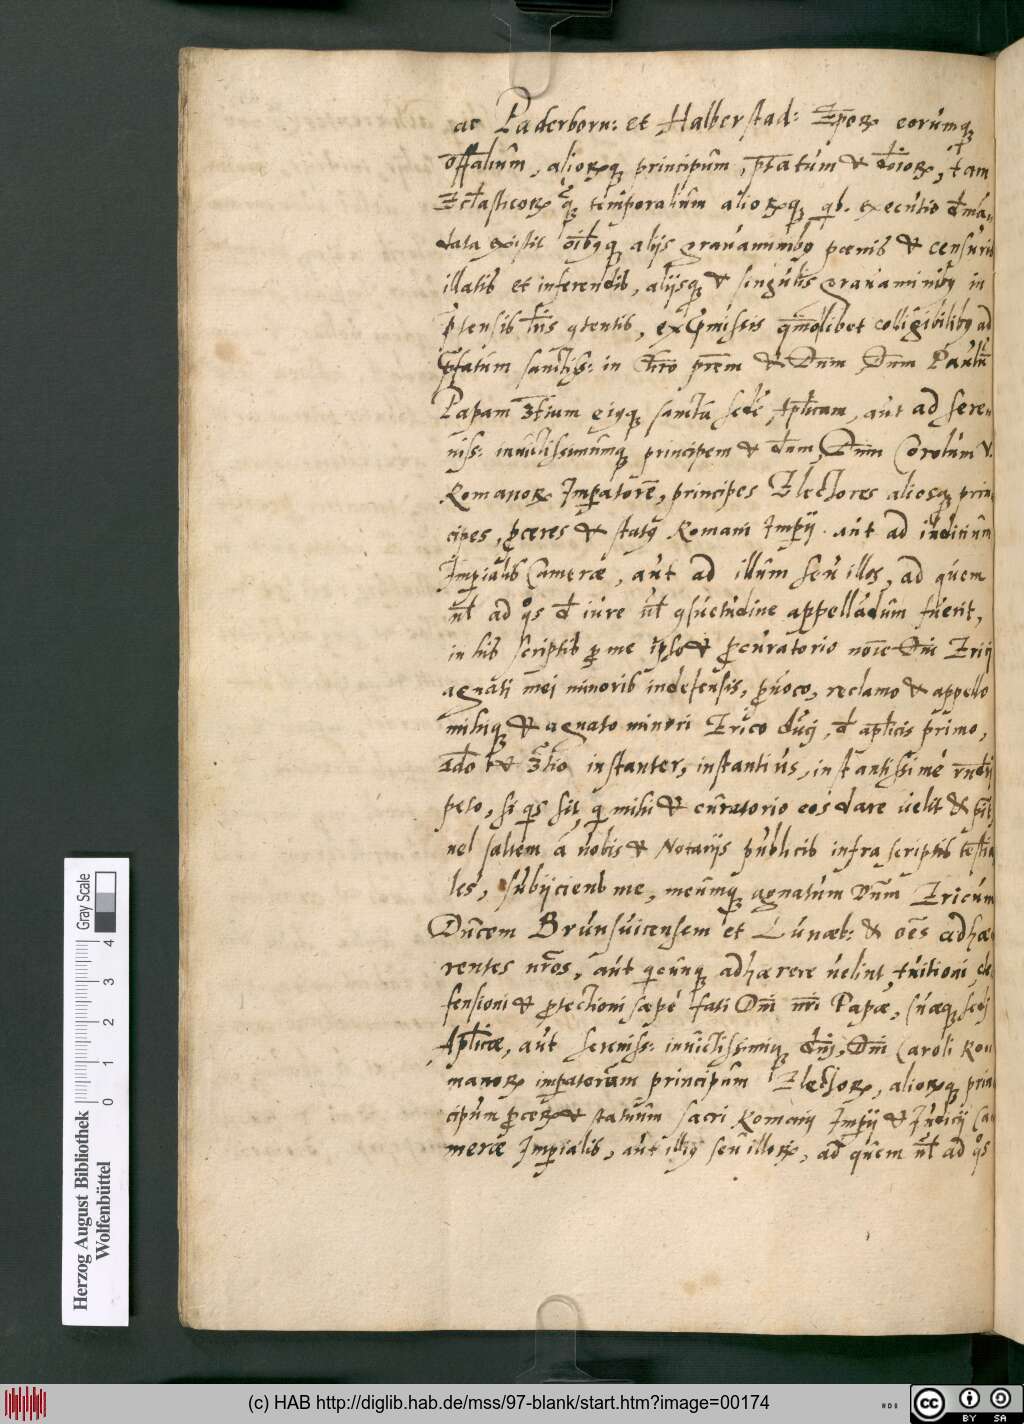 ac Paderborn: et Halberstad: Epor eorumq
offalium, aliorq principum, ptatum et dnor, tam
Eclasticor q temporalium aliorq qb. executio dman
data existit oibq aliis grauaminibq poenis et censuris
illatis et inferendis, aliisq et singulis grauaminibq in
ptensis lris qtentis, ex pmissis qmolibet colligibilibq ad
pfatum sanctiss: in Chro prem et Dnm Dnm Paulu
Papam 3tium eiqq sancta sede Aplicam, aut ad sere„
niss: inuictissimumq principem et dnm, Dnm Carolum V.
Romanor Imperatore, principes Electores aliosq prin„
cipes, pceres et statq Romani Imperij aut ad iuditium
Imperialis Camerae, aut ad illum seu illos, ad quem
ul ad qs d iure ul qsuetudine appelladum fuerit,
in his scriptis p me ipso et pcuratorio noie Dni Erici
agnati mei minoris indefensis, puoco, reclamo et appello
mihiq et agnato minori Erico duci, d aplicis primo,
2do et 3tio instanter, instantius, instantissime
peto, si qs sit, q mihi et curatorio eos dare uelit et
uel saltem a uobis et Notariis publicis infra scriptis testia
les, subijciens me, meumq agnatum Dnm Ericum
Ducem Brunsuicensem et Lunaeb: et oes adhae
rentes nros, aut qcunq adhaerere uelint, tuitioni, de
fensioni et ptectioni saepe fati Dni nri Papae, suaeq sedis
Aplicae, aut sereniss: inuictissimiq dni, Dni Caroli Ro
manor imperatorum principum Elector, aliorq prin
cipum pcer et statuum sacri Romani Imperij et Iudicij Ca
merae Imperialis, aut illiq seu illor, ad quem ul ad qs
Gray Scale
0 1 2 3 4
Herzog August Bibliothek
Wolfenbüttel
(c) HAB http://diglib.hab.de/mss/97-blank/start.htm?image=00174
cc BY SA